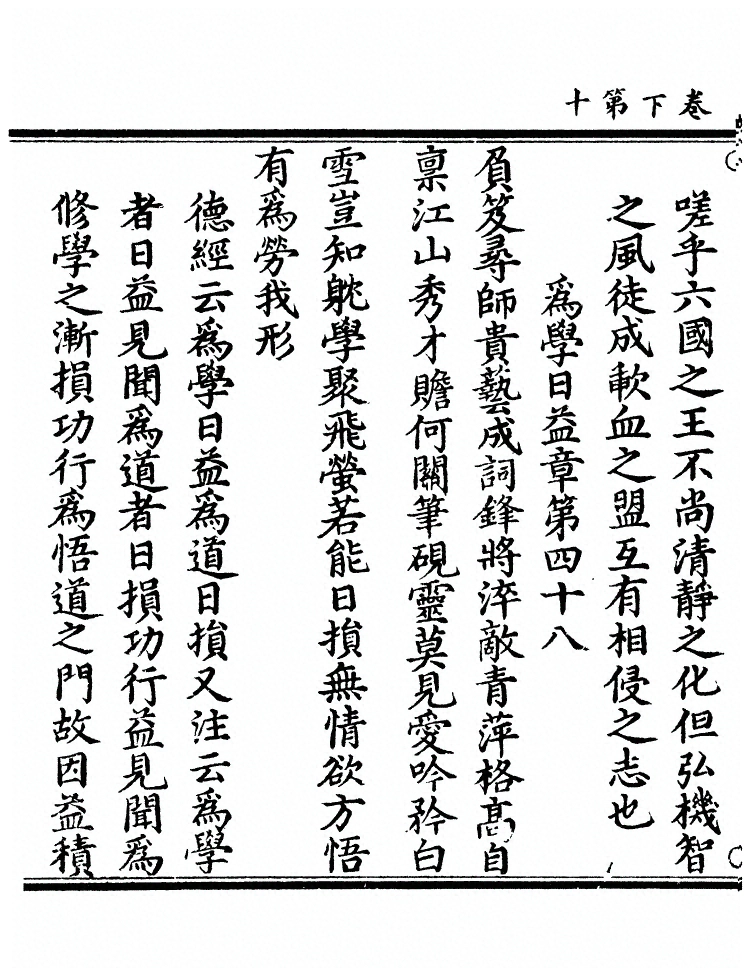 卷下第十
嗟乎六國之王不尚清靜之化但弘機智
之風徒成歃血之盟互有相侵之志也
為學日益章第四十八
負笈尋師貴藝成詞鋒將淬敵青萍格髙自
禀江山秀才贍何關筆硯靈莫見愛吟矜白
雪豈知躭學聚飛螢若能日損無情欲方悟
有為勞我形
德經云為學日益為道日損又注云為學
者日益見聞為道者日損功行益見聞為
修學之漸損功行為悟道之門故因益積